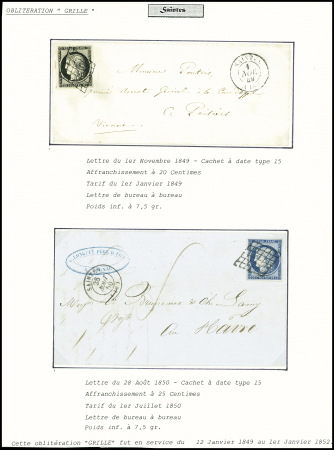 OBLITERATION " GRILLE "
Saintes
Monsieur
1
NOV.
49
à Poitiers
Vienne
Lettre du 1er Novembre 1849 - Cachet à date type 15
Affranchissement à 20 Centimes
Tarif du 1er Janvier 1849
Lettre de bureau à bureau
Poids inf. à 7,5 gr.
28
Au Havre
Lettre du 28 Août 1850 - Cachet à date type 15
Affranchissement à 25 Centimes
Tarif du 1er Juillet 1850
Lettre de bureau à bureau
Poids inf. à 7,5 gr.
Cette oblitération "GRILLE" fut en service du 12 Janvier 1849 au 1er Janvier 1852.